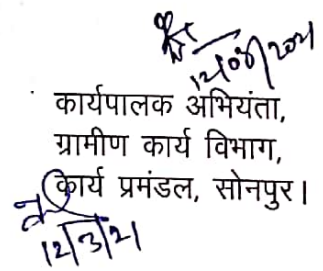 12/03/2021
कार्यपालक अभियंता,
ग्रामीण कार्य विभाग,
कार्य प्रमंडल, सोनपुर।
12/3/21